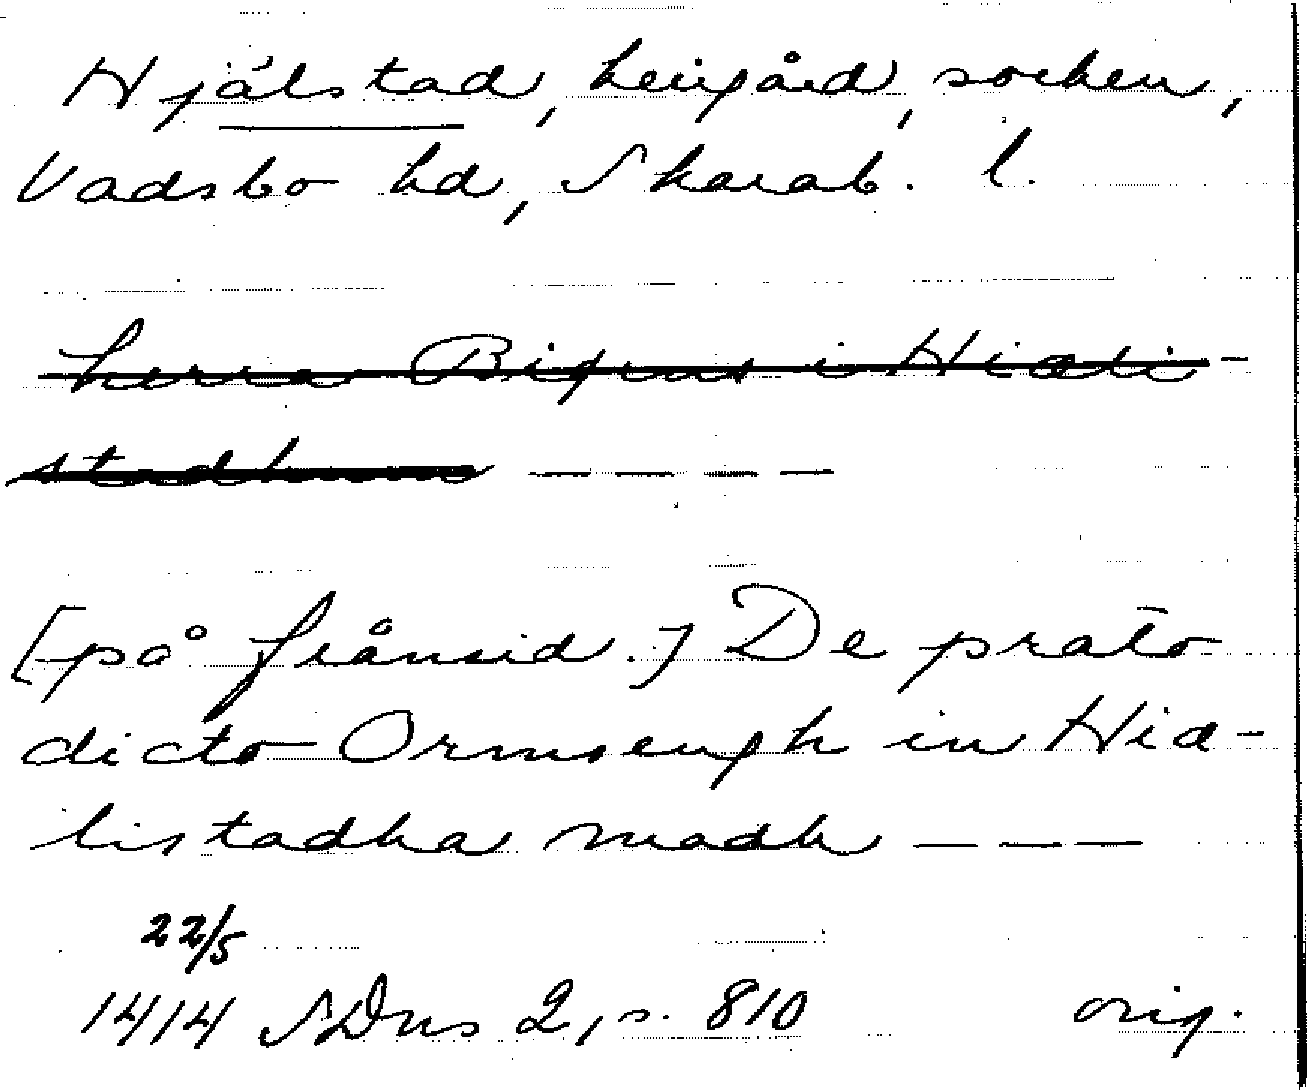 Hjälstad, herrgård, socken,
Vadsbo hd, Skarab. l.
herra Bigurs i Hiæli-
stadhum — — — —
[på frånsid.] De prato
dicto Ormsengh in Hiæ-
listadha madh — — —
22/5
1414 SDns 2, s. 810 orig.